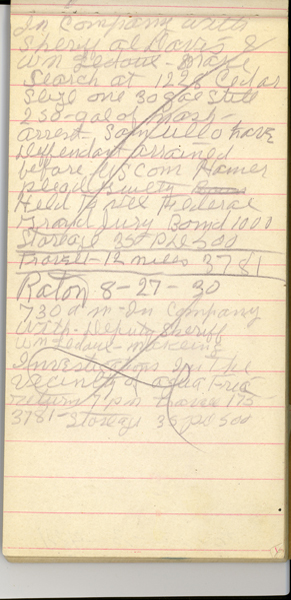 In Company with
Sheriff Al Davis &
Wm Ledoux - Make
Search at 1228 Cedar
Seize one 30 gal Still
250-gal of mash-
arrest Sam
Deffendant arrained
before US Com Homer
plead Guilty
Held to see Federal
Grand Jury Bond 1000
Storage 35¢ P.D. 500
Travel-12 miles 3781
Raton 8-27-30
730 a m-In Company
With-Deputy Sheriff
Wm Ledoux-makeing
Investigations In the
Vacinity of
return 7 pm travel 175-
3781-Storage 35 pd 500